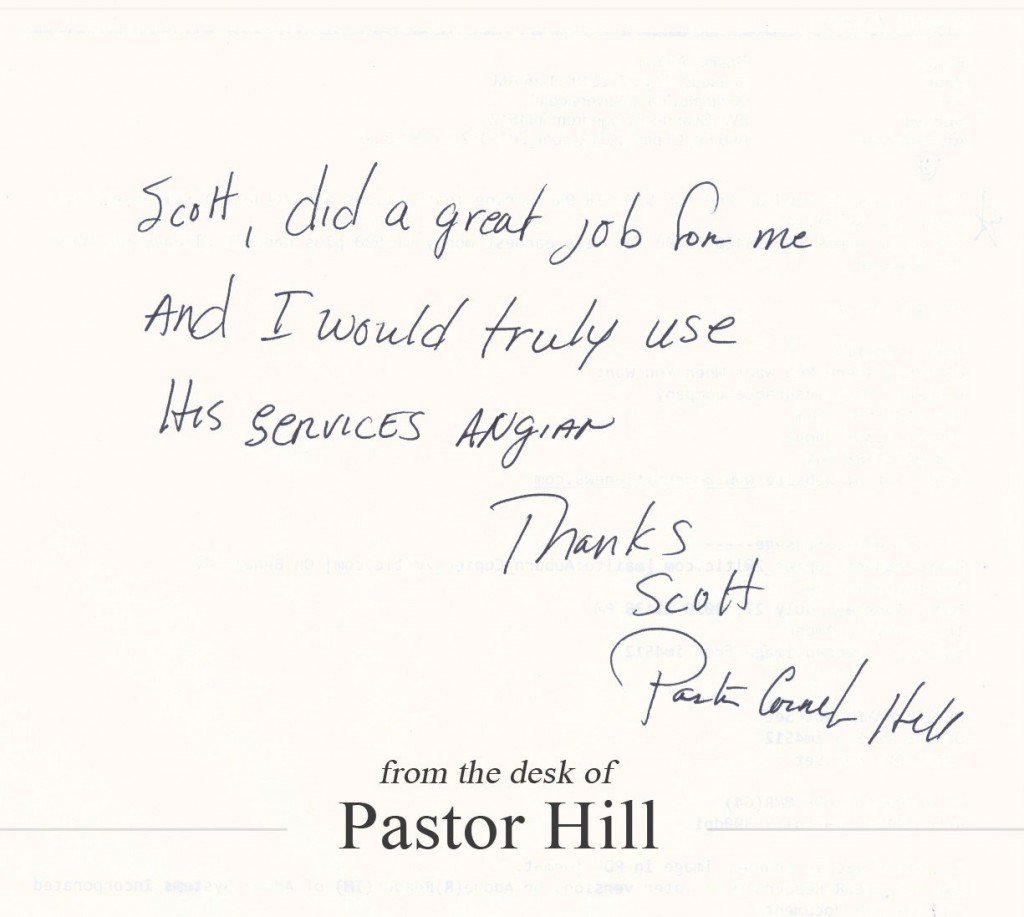 Scott, did a great job for me
And I would truly use
His services angian
Thanks
Scott
Pastor Cornell Hill
from the desk of
Pastor Hill